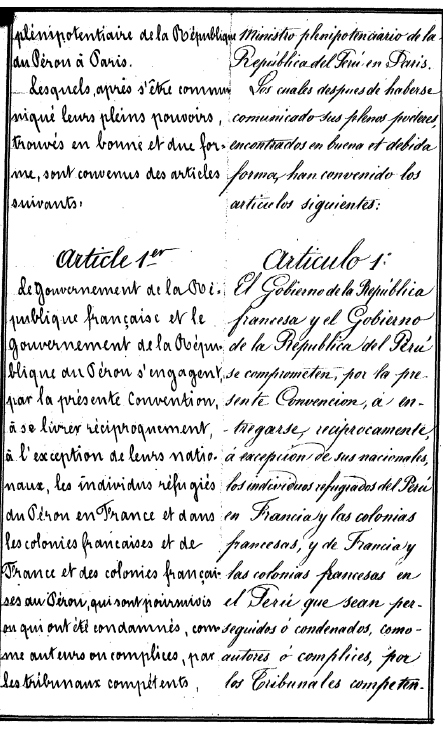 plénipotentiaire de la République
du Pérou à Paris.
Lesquels, après s'être commu
niqué leurs pleins pouvoirs,
trouvés en bonne et due for-
me, sont convenus des articles
suivants:
Article 1er
Le Gouvernement de la Ré-
publique française et le
Gouvernement de la Répu-
blique du Pérou s'engagent,
par la présente Convention,
à se livrer réciproquement,
à l'exception de leurs natio-
naux, les individus réfugiés
du Pérou en France et dans
les colonies françaises et de
France et des colonies françai-
ses au Pérou, qui sont poursuivis
ou qui ont été condamnés, com-
me auteurs ou complices, par
les tribunaux compétents,
Ministro plenipotenciario de la
República del Perú en Paris.
Los cuales despues de haberse
comunicado sus plenos poderes,
encontrados en buena et debida
forma, han convenido los
articulos siguientes:
Articulo 1:
El Gobierno de la República
francesa y el Gobierno
de la República del Perú
se comprometen, por la pre-
sente Convencion, á en-
tregarse, reciprocamente,
á excepcion de sus nacionales,
los individuos refugiados del Perú
en Francia y las colonias
francesas, y de Francia y
las colonias francesas en
el Perú que sean per-
seguidos ó condenados, como
autores ó complices, por
los Tribunales competen-